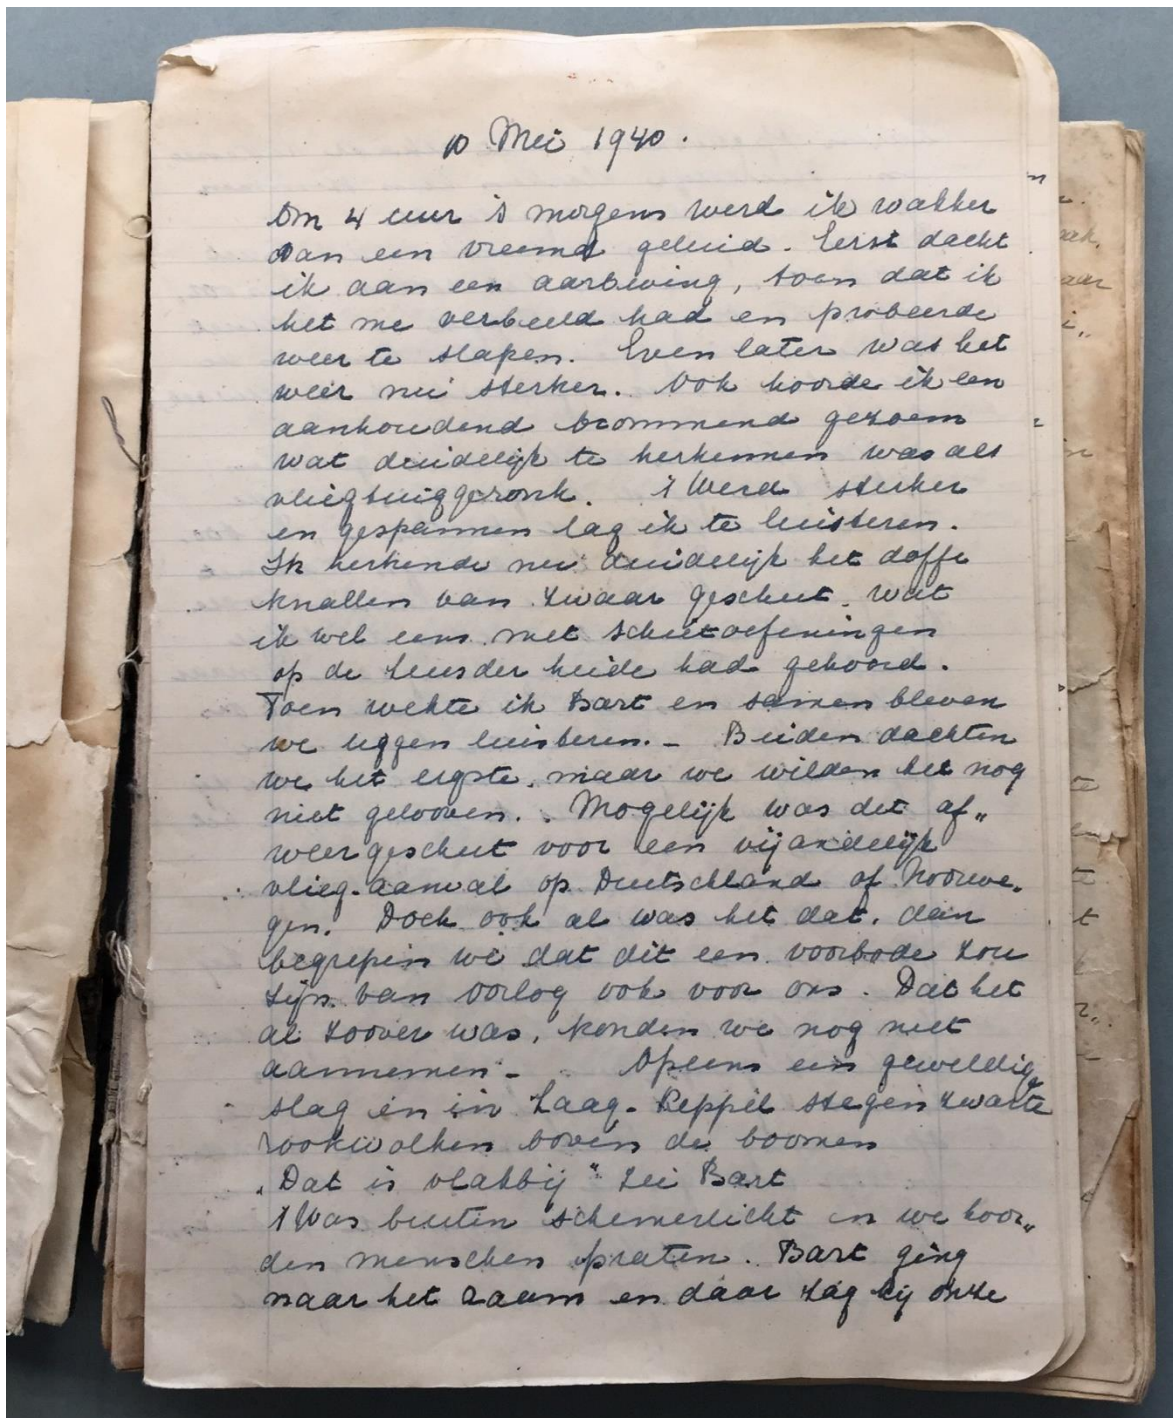 10 Mei 1940.
Om 4 uur 's morgens werd ik wakker
van een vreemd geluid. Eerst dacht
ik aan een aardbeving, toen dat ik
het me verbeeld had en probeerde
weer te slapen. Even later was het
weer nu sterker. Ook hoorde ik een
aanhoudend brommend gezoem
wat duidelijk te herkennen was als
vliegtuiggeronk. 't Werd sterker
en gespannen lag ik te luisteren.
Ik herkende nu duidelijk het doffe
knallen van zwaar geschut. wat
ik wel eens met schietoefeningen
op de Leusder heide had gehoord.
Toen wekte ik Bart en samen bleven
we liggen luisteren. – Beiden dachten
we het ergste, maar we wilden het nog
niet gelooven. Mogelijk was dit af„
weergeschut voor een vijandelijk
vlieg-aanval op Duitschland of Noorwe„
gen. Doch ook al was het dat, dan
begrepen we dat dit een voorbode zou
zijn van oorlog ook voor ons. Dat het
al zoover was, konden we nog niet
aannemen – Opeens een geweldige
slag en in Laag-Keppel stegen zwarte
rookwolken boven de boomen
„Dat is vlakbij" zei Bart
't Was buiten schemerlicht en we hoor„
den menschen praten. Bart ging
naar het raam en daar zag hij onze